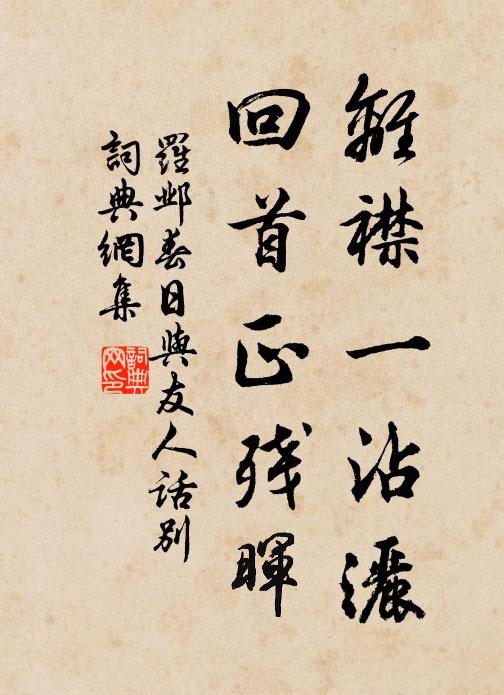 離襟一沾灑
回首正殘暉
羅鄴春日與友人話別
詞典網集
詞典网印